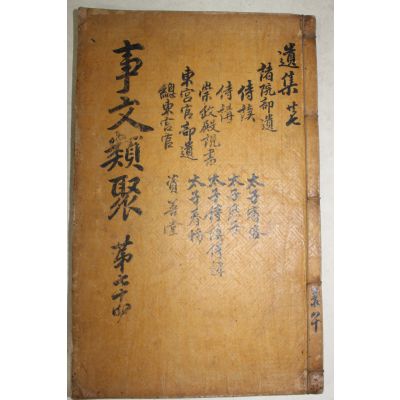 遺集 廿七
諸院部遺
侍讀
侍講
崇政殿說書
東宮官部遺
總東宮官
太子賓客
太子庶子
太子侍讀侍講
太子
資善堂
事文類聚 第七十